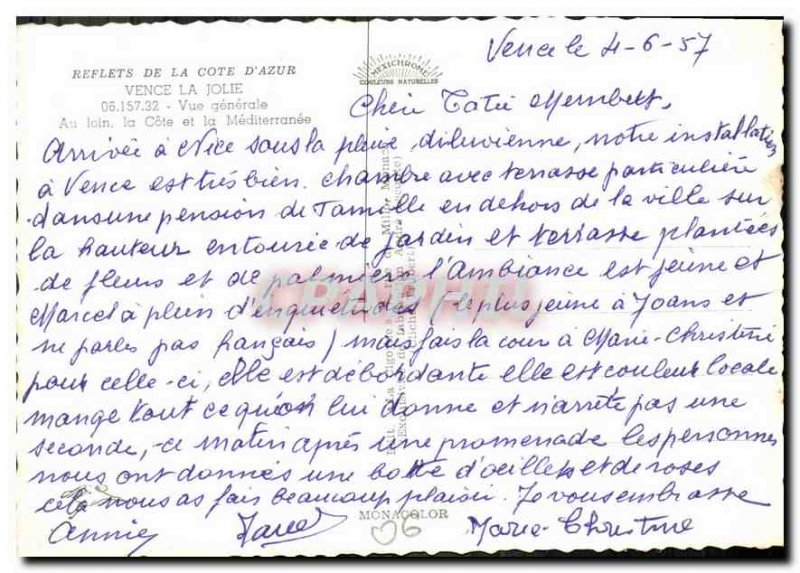 Vence le 4-6-57
REFLETS DE LA COTE D'AZUR
VENCE LA JOLIE
06.157.32 - Vue générale
Au loin, la Côte et la Méditerranée
MEXICHROME
COULEURS NATURELLES
Chère Tatie
Arrivée à Nice sous la pluie diluvienne, notre installation
à Vence est très bien. chambre avec terrasse particulière
dans une pension de famille en dehors de la ville sur
la hauteur entourée de jardin et terrasse plantées
de fleurs et de palmiers l'Ambiance est jeune et
Marcel à plein d'enquietudes (le plus jeune à 70 ans et
ne parles pas français) mais fais la cour à Marie-Christine
pour celle-ci, elle est débordante elle est couleur locale
mange tout ce qu'on lui donne et n'arrete pas une
seconde, ce matin après une promenade les personnes
nous ont donnés une botte d'oeillets et de roses
cela nous as fais beaucoup plaisir. Je vous embrasse
Annie Marie-Christine
MONACOLOR
06